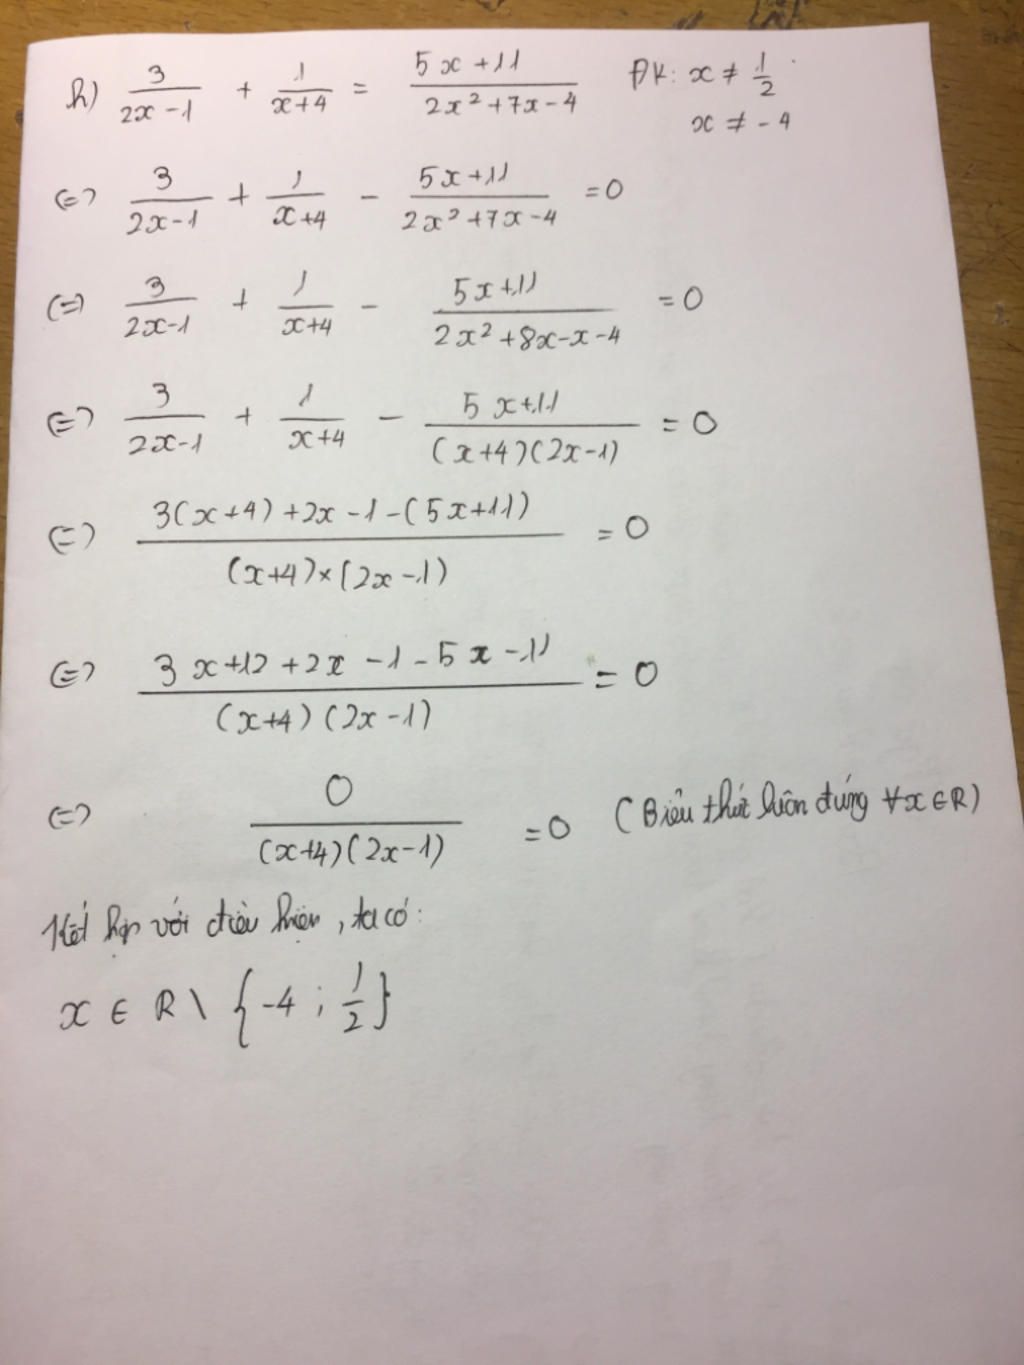 h) 3/(2x-1) + 1/(x+4) = (5x+11)/(2x²+7x-4) ĐK: x ≠ 1/2
x ≠ -4
(=) 3/(2x-1) + 1/(x+4) - (5x+11)/(2x²+7x-4) = 0
(=) 3/(2x-1) + 1/(x+4) - (5x+11)/(2x²+8x-x-4) = 0
(=) 3/(2x-1) + 1/(x+4) - (5x+11)/((x+4)(2x-1)) = 0
(=) (3(x+4)+2x-1-(5x+11))/((x+4)×(2x-1)) = 0
(=) (3x+12+2x-1-5x-11)/((x+4)(2x-1)) = 0
(=) 0/((x+4)(2x-1)) = 0 (Biểu thức luôn đúng ∀x∈R)
Kết hợp với điều kiện, ta có:
x ∈ R \ {-4 ; 1/2}